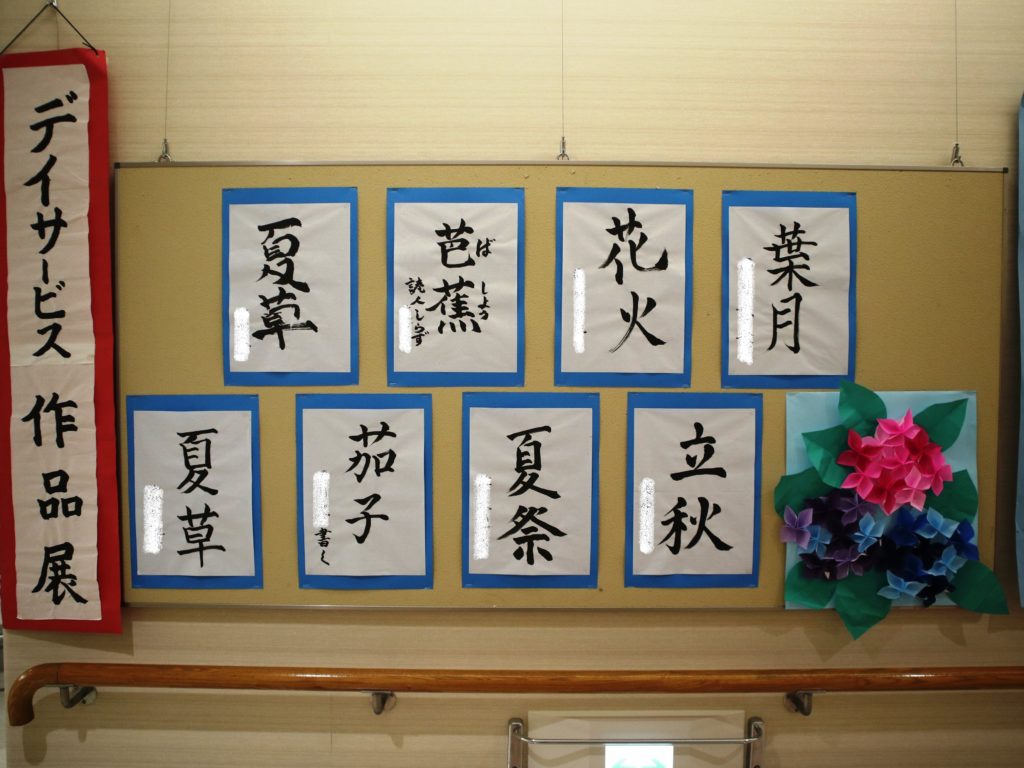 デイサービス 作品展
夏草
芭蕉
ばしょう
読人しらず
花火
葉月
夏草
茄子
書く
夏祭
立秋